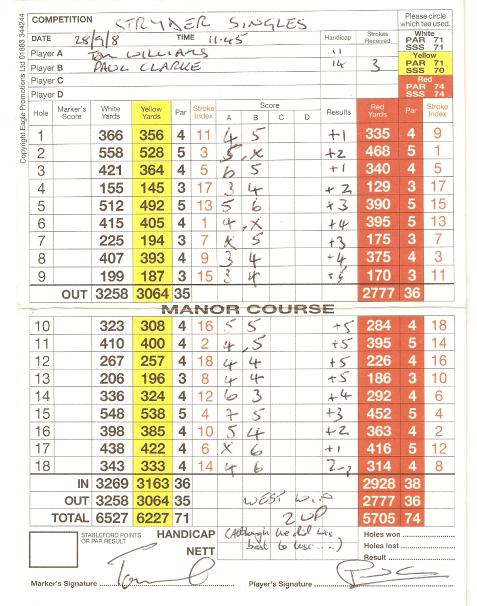 COMPETITION STRYMER SINGLES Please circle which tee used.
DATE 28/9/8 TIME 11:45 Handicap Strokes Received White PAR 71 SSS 71
Player A Tom WILLIAMS 11 Yellow PAR 71 SSS 70
Player B PAUL CLARKE 14 3
Player C Red PAR 74 SSS 74
Player D
Copyright Eagle Promotions Ltd 01883 344244
Hole Marker's Score White Yards Yellow Yards Par Stroke Index Score A B C D Results Red Yards Par Stroke Index
1 366 356 4 11 4 5 +1 335 4 9
2 558 528 5 3 5 x +2 468 5 1
3 421 364 4 5 6 5 +1 340 4 5
4 155 145 3 17 3 4 +2 129 3 17
5 512 492 5 13 5 6 +3 390 5 15
6 415 405 4 1 4 x +4 395 5 13
7 225 194 3 7 x 5 +3 175 3 7
8 407 393 4 9 3 4 +4 375 4 3
9 199 187 3 15 3 4 170 3 11
OUT 3258 3064 35 2777 36
MANOR COURSE
10 323 308 4 16 5 5 +5 284 4 18
11 410 400 4 2 4 5 +5 395 5 14
12 267 257 4 18 4 4 +5 226 4 16
13 206 196 3 8 4 4 +5 186 3 10
14 336 324 4 12 6 3 +4 292 4 6
15 548 538 5 4 7 5 +3 452 5 4
16 398 385 4 10 5 4 +2 363 4 2
17 438 422 4 6 x 6 +1 416 5 12
18 343 333 4 14 4 6 314 4 8
IN 3269 3163 36 2928 38
OUT 3258 3064 35 WEST WIN 2777 36
TOTAL 6527 6227 71 2 UP 5705 74
STABLEFORD POINTS OR PAR RESULT HANDICAP (Although he did his best to lose ....) Holes won
NETT Holes lost
Result
Marker's Signature Player's Signature